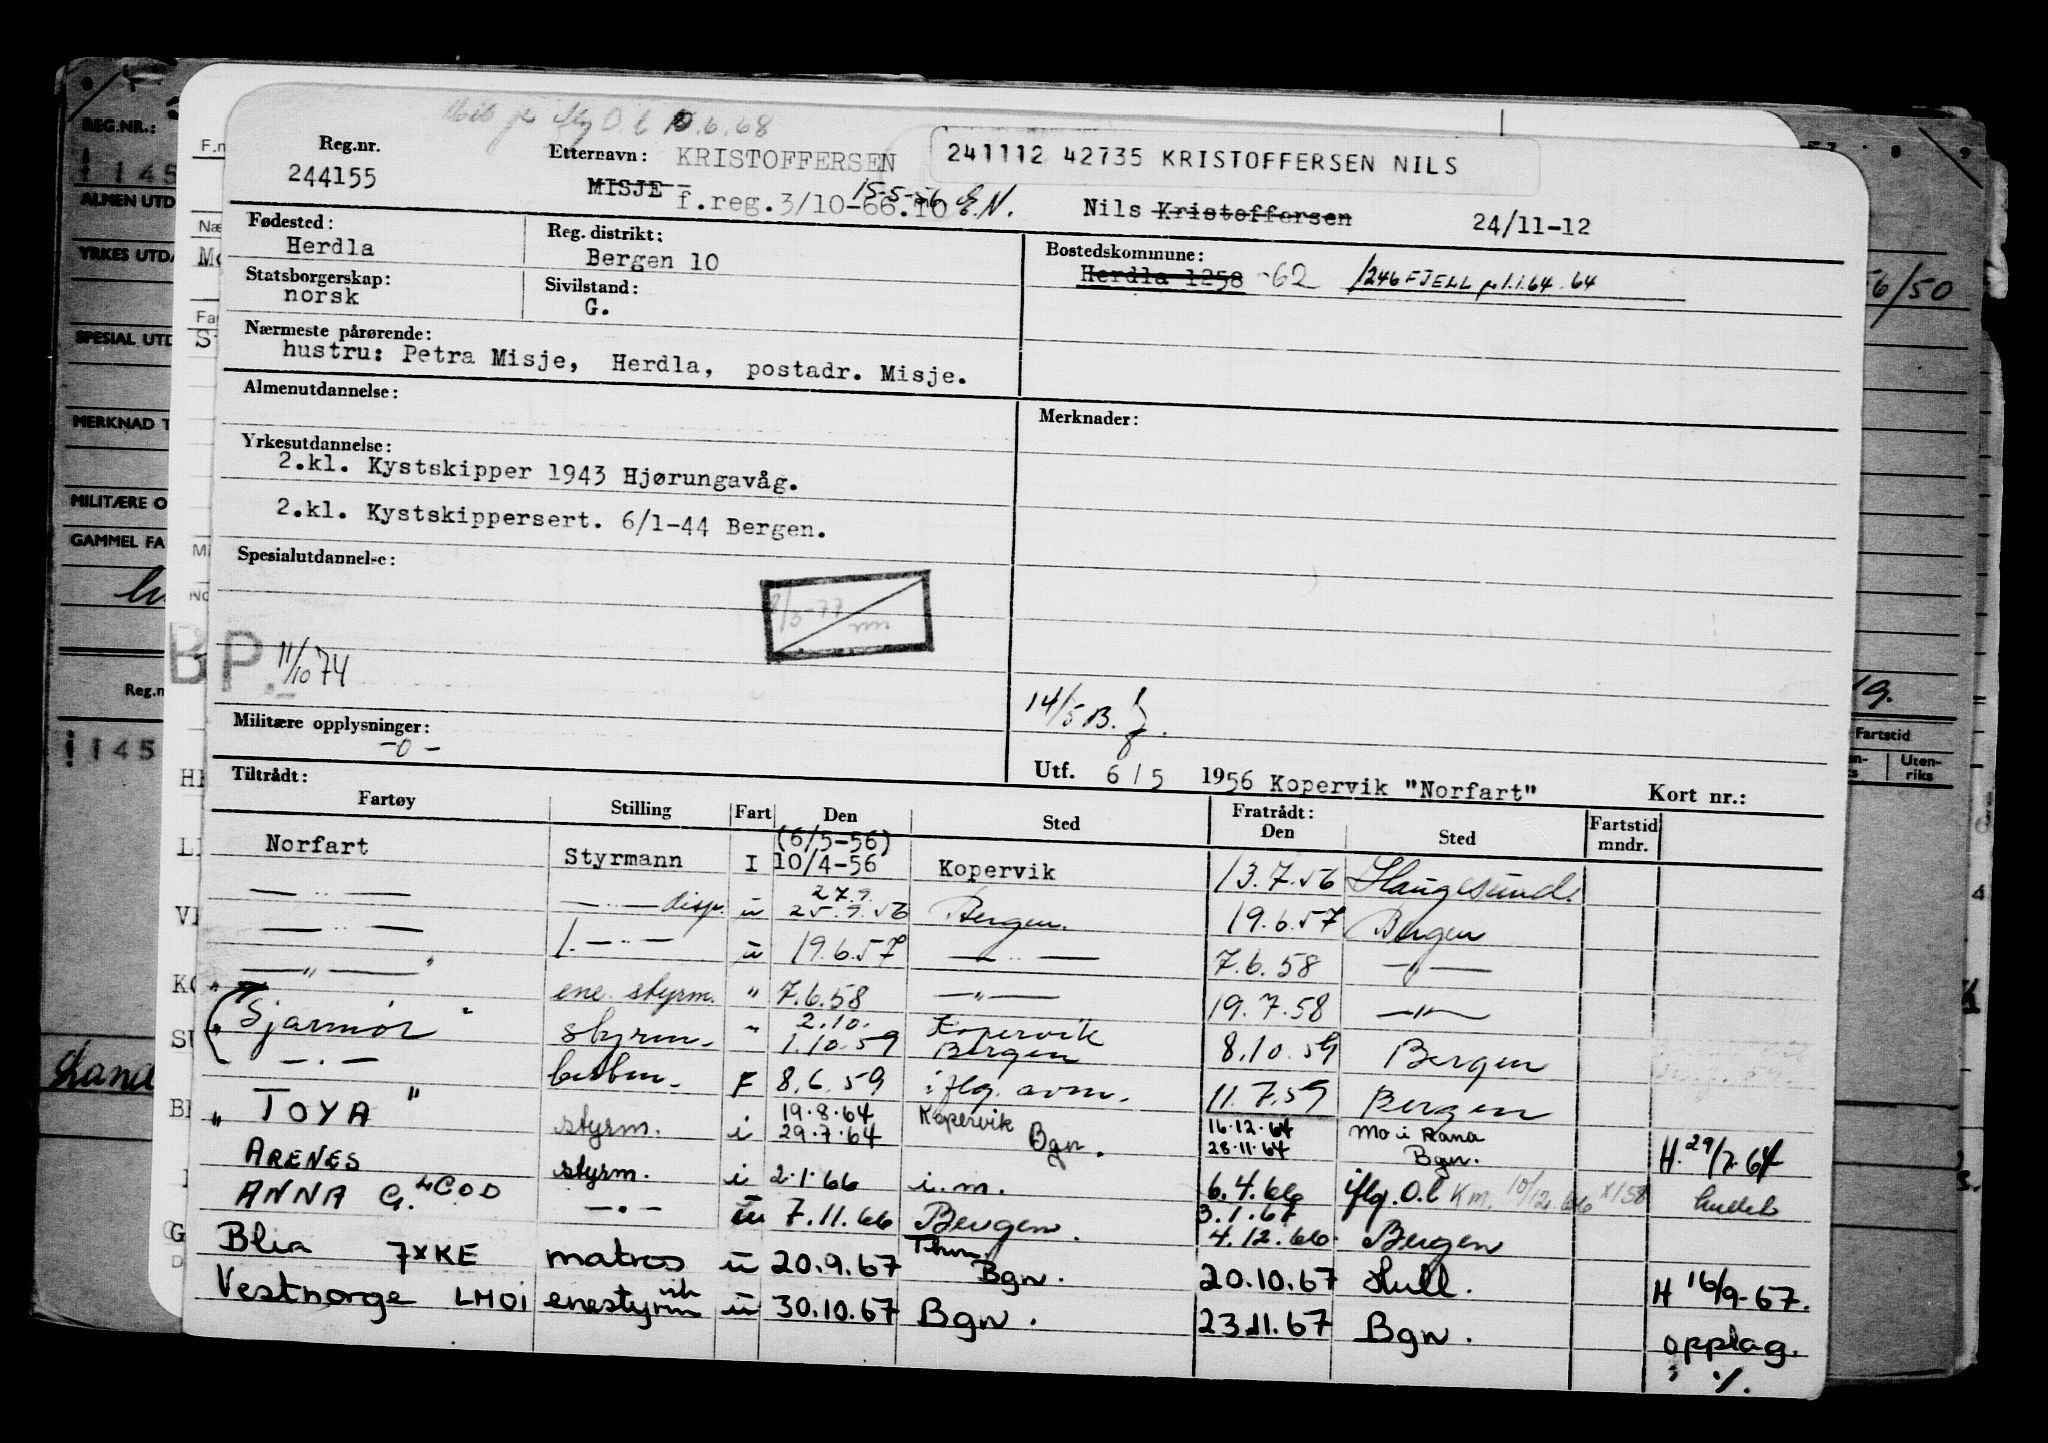 O.l 10.6.68
Reg.nr. Etternavn: KRISTOFFERSEN 241112 42735 KRISTOFFERSEN NILS
244155 MISJE 15-5-56 E.N.
f.reg.3/10-66.10 Nils Kristoffersen 24/11-12
Fødested: Reg. distrikt: Bostedskommune:
Herdla Bergen 10 Herdla 1258 -62 1246 FJELL pr 1.1.64 .64
Statsborgerskap: Sivilstand:
norsk G.
Nærmeste pårørende:
hustru: Petra Misje, Herdla, postadr. Misje.
Almenutdannelse: Merknader:
Yrkesutdannelse:
2.kl. Kystskipper 1943 Hjørungavåg.
2.kl. Kystskippersert. 6/1-44 Bergen.
Spesialutdannelse:
BP. 11/10 74
14/5 B.
Militære opplysninger:
-0-
Utf. 6/5 1956 Kopervik "Norfart" Kort nr.:
Tiltrådt: Fratrådt:
Fartøy Stilling Fart Den Sted Den Sted Fartstid mndr.
Norfart Styrmann I (6/5-56) 10/4-56 Kopervik 13.7.56 Haugesund.
— .. — — .. — disp. u 27.9. 25.9.56 Bergen. 19.6.57 Bergen
— .. — 1. — .. — u 19.6.57 — .. — 7.6.58 — " —
— " — ene. styrm. " 7.6.58 — " — 19.7.58 — " —
" Sjarmør " styrm. " 2.10. 1.10.59 Kopervik Bergen 8.10.59 Bergen
" — . — F 8.6.59 iflg. avm. 11.7.59 Bergen
" TOYA " styrm. i 19.8.64 29.7.64 Kopervik Bgn. 16.12.64 28.11.64 Mo i Rana Bgn. H. 29/7.64
ARENES styrm. i 2.1.66 i.m. 6.4.66 iflg. O.l Km. 10/12.66 x158
ANNA G. LCOD — . — u 7.11.66 Bergen. 3.1.67 4.12.66. Bergen
Blia 7XKE matros u 20.9.67 Bgn. 20.10.67 Hull. H 16/9-67.
Vestnorge LMOI enestyrm u 30.10.67 Bgn. 23.11.67 Bgn. opplag.
REG.NR.:
145
ALMEN UTD
YRKES UTDA
SPESIAL UTD
MERKNAD T
MILITÆRE O
GAMMEL FA
Reg.n
145
6/50
19.
Fartstid
Uten-
riks